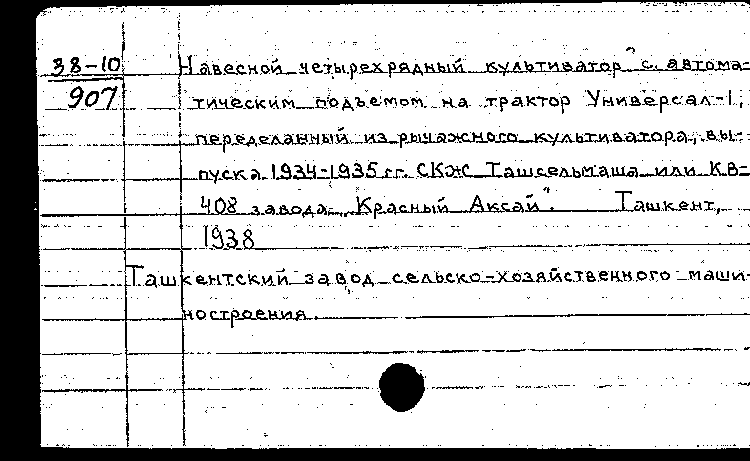 38-10
907
Навесной четырехрядный культиватор с автома-
тическим подъемом на трактор Универсал-1,
переделанный из рычажного культиватора, вы-
пуска 1934-1935 гг. СКЖ Ташсельмаша или КВ-
408 завода „Красный Аксай". Ташкент,
1938
Ташкентский завод сельско-хозяйственного маши-
ностроения.